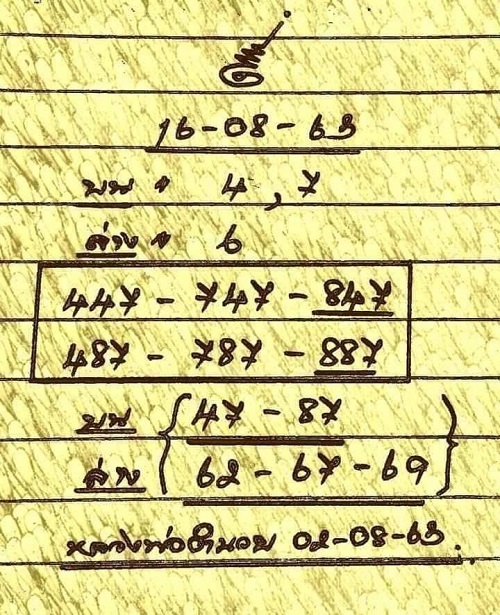 16-08-63
บน • 4, 7
ล่าง • 6
447 - 747 - 847
487 - 787 - 887
บน { 47 - 87 }
ล่าง { 62 - 67 - 69 }
หลวงพ่ออำนวย 02-08-63.